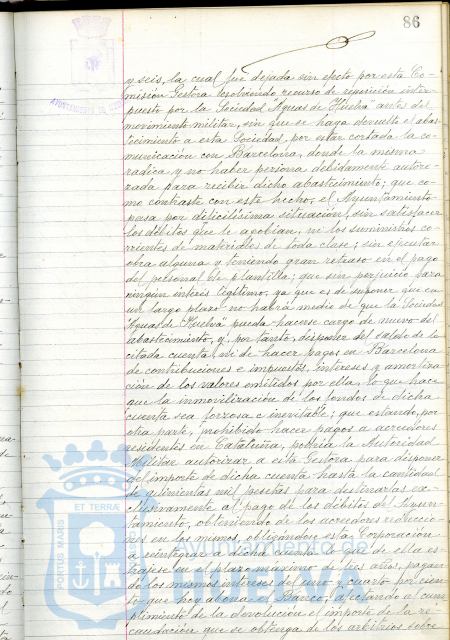 86
y seis, la cual fué dejada sin efecto por esta Co-
misión Gestora resolviendo recurso de reposición inter-
puesto por la Sociedad "Aguas de Huelva" antes del
movimiento militar, sin que se haya devuelto el abas-
tecimiento a esta Sociedad, por estar cortada la co-
municación con Barcelona, donde la misma
radica, y no haber persona debidamente autori-
zada para recibir dicho abastecimiento; que co-
mo contraste con este hecho, el Ayuntamiento
pasa por dificilísima situación, sin satisfacer
los débitos que le agobian, ni los suministros co-
rrientes de materiales de toda clase; sin ejecutar
obra alguna y teniendo gran retraso en el pago
del personal de plantilla; que sin perjuicio para
ningún interés legítimo, ya que es de suponer que en
un largo plazo no habrá medio de que la Sociedad
"Aguas de Huelva" pueda hacerse cargo de nuevo del
abastecimiento, y, por tanto, disponer del saldo de la
citada cuenta ni de hacer pagos en Barcelona
de contribuciones e impuestos, intereses y amortiza-
ción de los valores emitidos por ella, lo que hace
que la inmovilización de los fondos de dicha
cuenta sea forzosa e inevitable; que estando, por
otra parte, prohibido hacer pagos a acreedores
residentes en Cataluña, podría la Autoridad
Militar autorizar a esta Gestora para disponer
del importe de dicha cuenta hasta la cantidad
de quinientas mil pesetas para destinarlas ex-
clusivamente al pago de los débitos del Ayun-
tamiento, obteniendo de los acreedores reduccio-
nes en los mismos, obligándose esta Corporación
a reintegrar a dicha cuenta lo que de ella ex-
trajese en el plazo máximo de tres años, pagan-
do los mismos intereses del uno y cuarto por cien-
to que hoy abona el Banco, afectando al cum-
plimiento de la devolución el importe de la re-
caudación que se obtenga de los arbitrios sobre
AYUNTAMIENTO DE
PORTUS MARIS
ET TERRAE